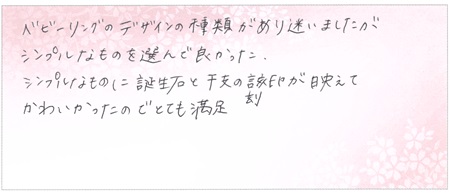 ベビーリングのデザインの種類があり迷いましたが
シンプルなものを選んで良かった.
シンプルなものに誕生石と干支の刻印が映えて
かわいかったのでとても満足